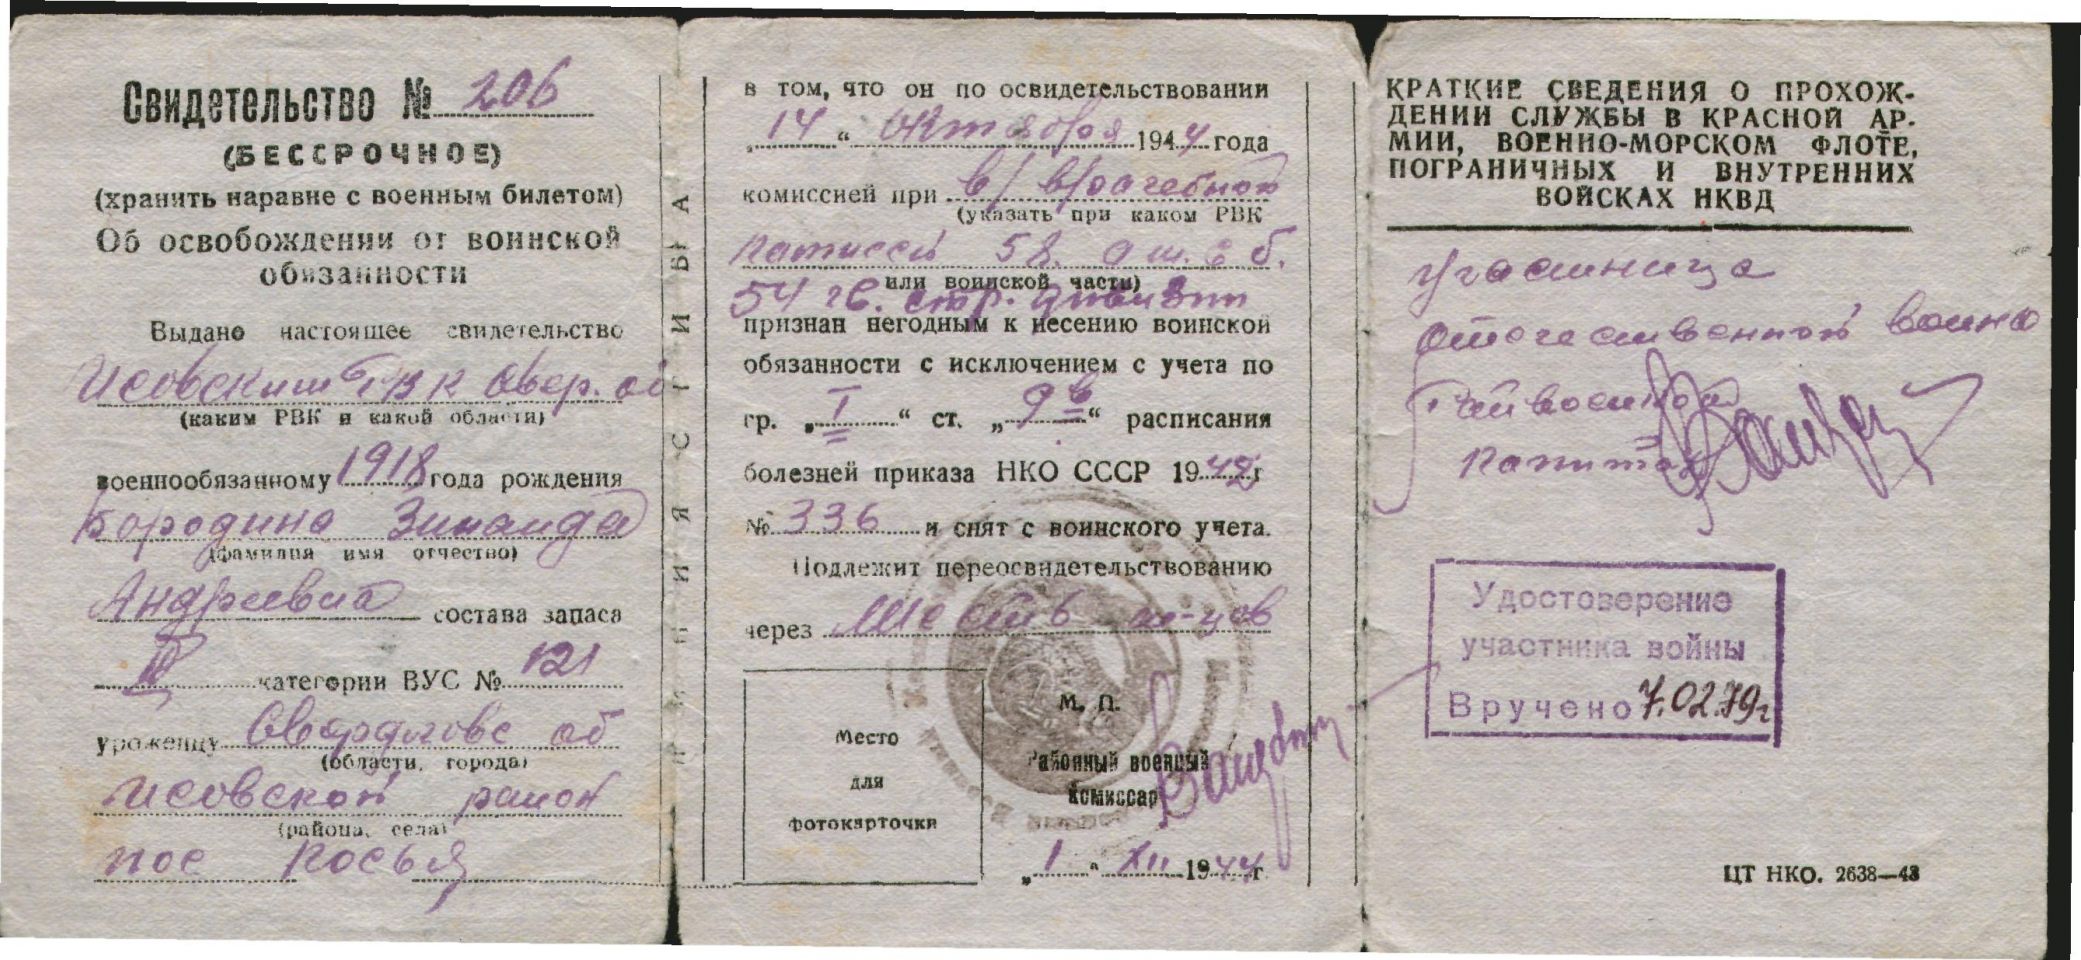 Свидетельство № 206
(БЕССРОЧНОЕ)
(хранить наравне с военным билетом)
Об освобождении от воинской
обязанности
Выдано настоящее свидетельство
Исовским РВК Свер. об
(каким РВК и какой области)
военнообязанному 1918 года рождения
Бородина Зинаида
(фамилия имя отчество)
Андреевна состава запаса
категории ВУС № 121
уроженцу Свердловс об
(области, города)
Исовской район
(района, села)
пос Косья
ПРИПИСКА
в том, что он по освидетельствовании
„ 14 “ Октября 1944 года
комиссией при в/врачебной
(указать при каком РВК
58.
или воинской части)
54 гв. стр. дивизии
признан негодным к несению воинской
обязанности с исключением с учета по
гр. „ I “ ст. „ 9в “ расписания
болезней приказа НКО СССР 1942 г
№ 336 и снят с воинского учета.
Подлежит переосвидетельствованию
через Шесть м-цев
Место
для
фотокарточки
М. П.
Районный военный
комиссар
„ 1 “ XII 1944 г
КРАТКИЕ СВЕДЕНИЯ О ПРОХОЖ-
ДЕНИИ СЛУЖБЫ В КРАСНОЙ АР-
МИИ, ВОЕННО-МОРСКОМ ФЛОТЕ,
ПОГРАНИЧНЫХ И ВНУТРЕННИХ
ВОЙСКАХ НКВД
Участница
отечественной войны
Райвоенком
капитан
Удостоверение
участника войны
Вручено 7.02.79г
ЦТ НКО. 2638—43